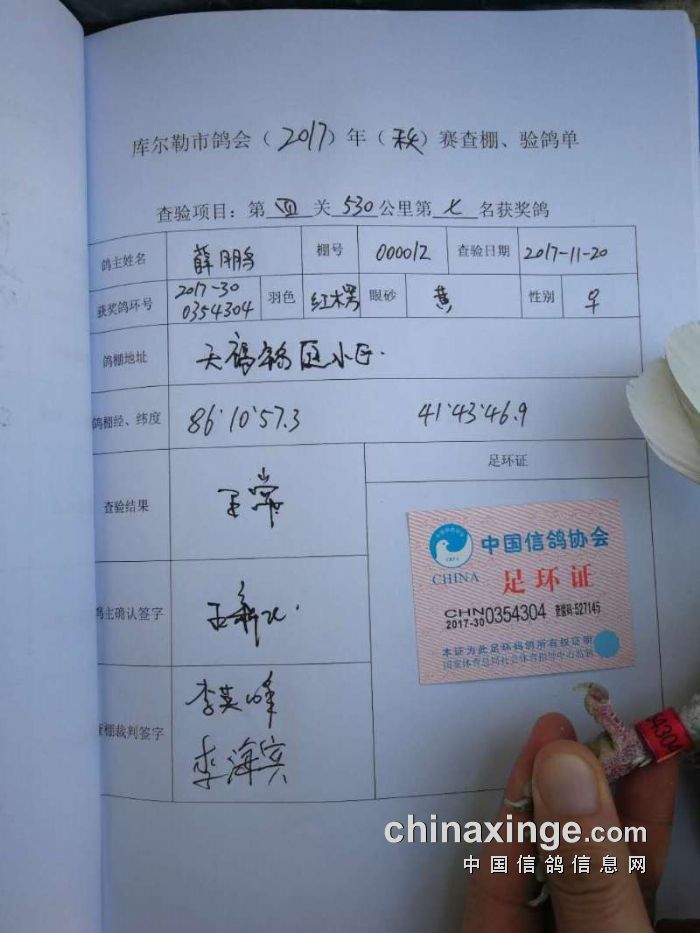 库尔勒市鸽会（2017）年（秋）赛查棚、验鸽单
查验项目：第 四 关 530 公里第 七 名获奖鸽
鸽主姓名 薛鹏 棚号 000012 查验日期 2017-11-20
获奖鸽环号 2017-30 0354304 羽色 红楞 眼砂 黄 性别
鸽棚地址 小区
鸽棚经、纬度 86°10'57.3 41°43'46.9
查验结果 正常
足环证
鸽主确认签字
查棚裁判签字 李英峰
李海宾
中国信鸽协会
CHINA 足环证
CHN
2017-30 0354304 查验码:527145
本证为此足环鸽所有权证明
国家体育总局社会体育指导中心监制
54304
chinaxinge.com
中国信鸽信息网